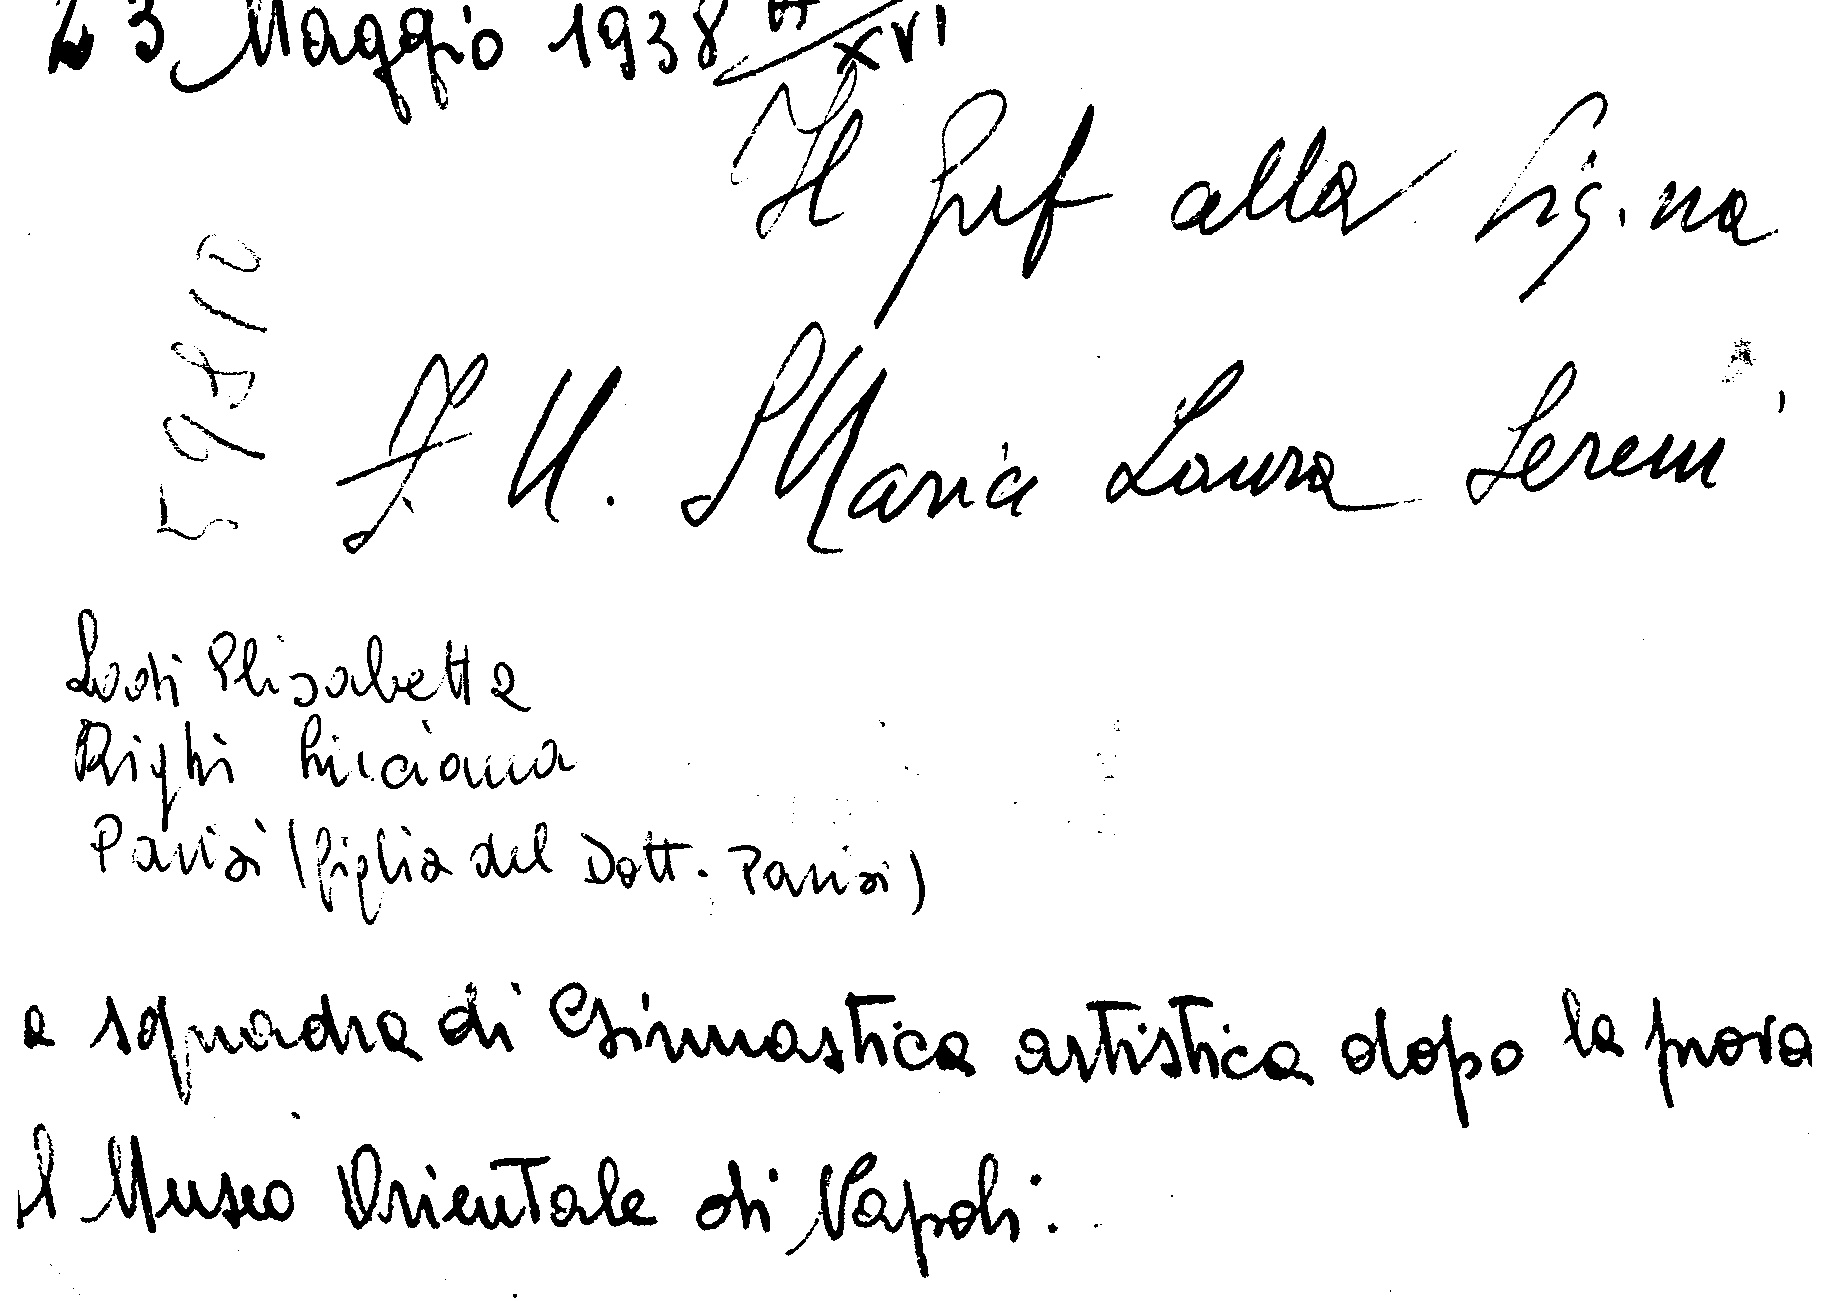 23 Maggio 1938 XVI
Il Guf alla Sig.na
F. U. Maria Laura Sereni
59810
Lodi Elisabetta
Righi Luciana
Parisi (figlia del Dott. Parisi)
a squadra di Ginnastica artistica dopo la prova
il Museo Orientale di Napoli.